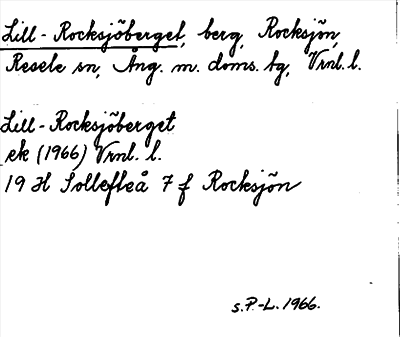 Lill-Rocksjöberget, berg, Rocksjön,
Resele sn, Ång. m. doms. tg, Vrnl. l.
Lill-Rocksjöberget
ek (1966) Vrnl. l.
19 H Sollefteå 7 f Rocksjön
s.P.-L. 1966.